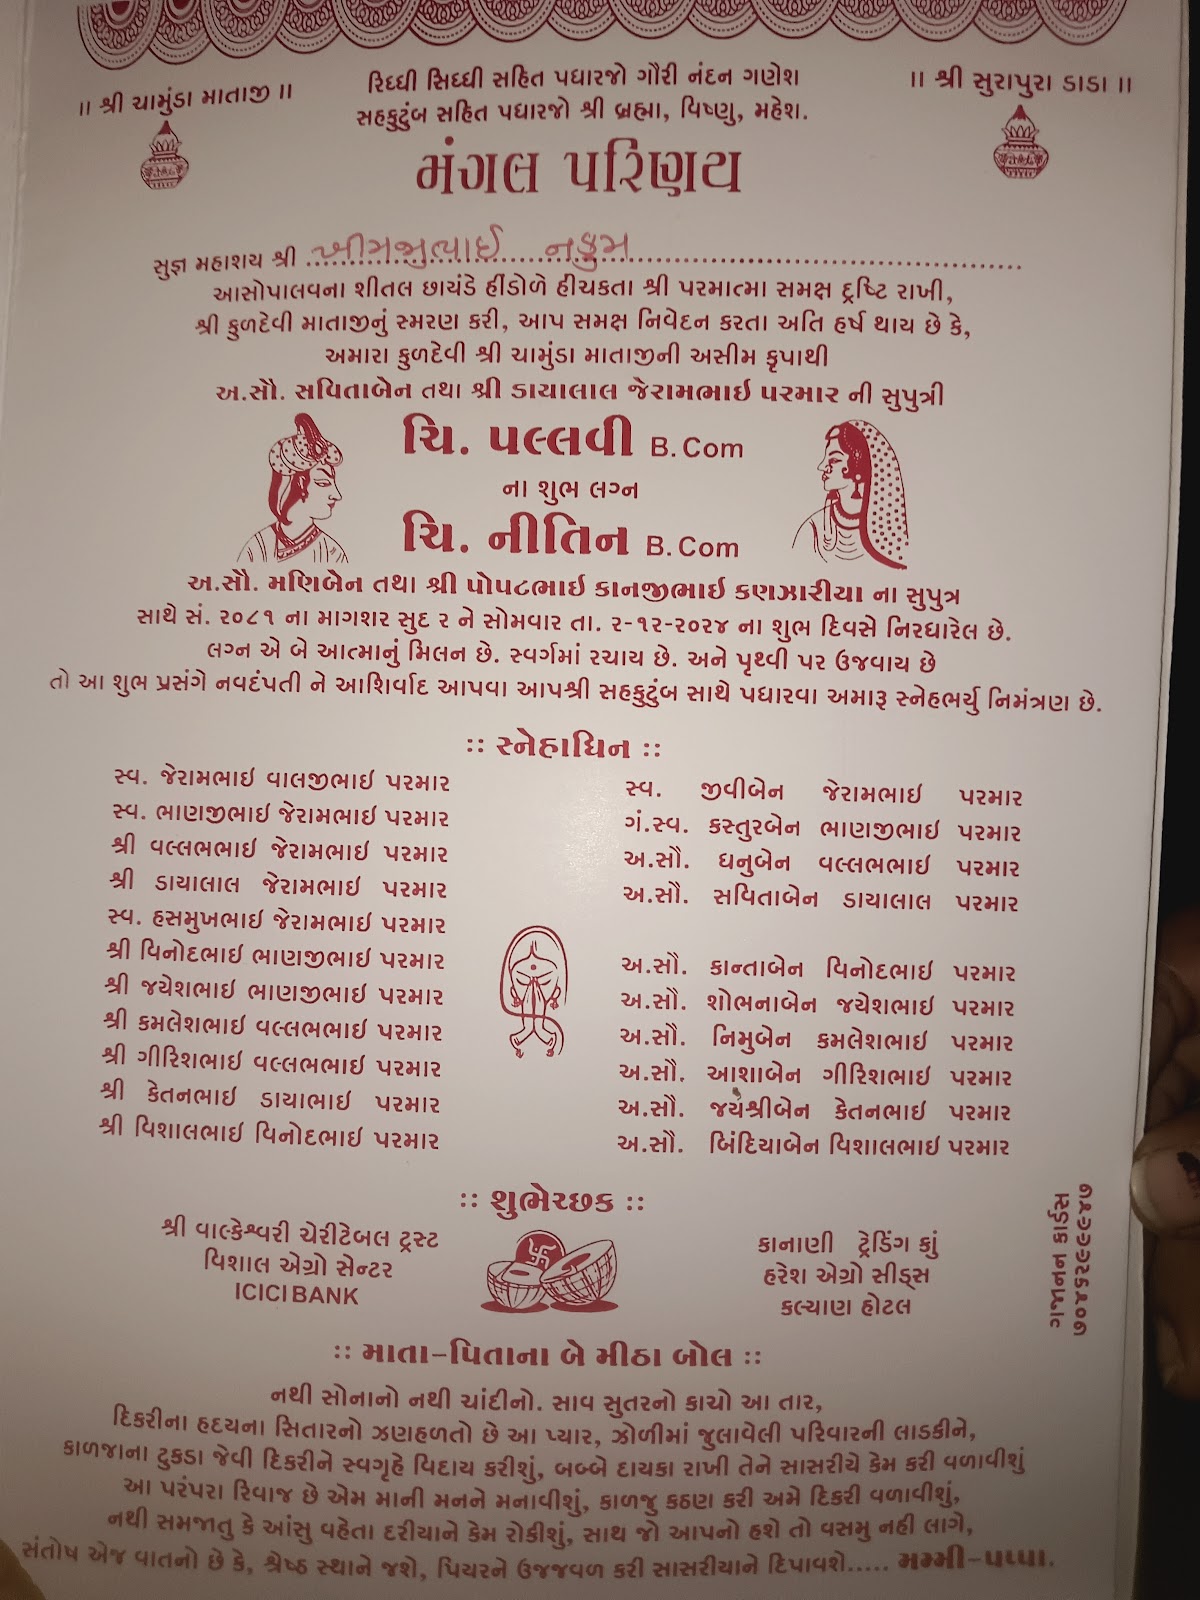 ॥ શ્રી ચામુંડા માતાજી ॥
રિધ્ધી સિધ્ધી સહિત પધારજો ગૌરી નંદન ગણેશ
સહકુટુંબ સહિત પધારજો શ્રી બ્રહ્મા, વિષ્ણુ, મહેશ.
॥ શ્રી સુરાપુરા ડાડા ॥
મંગલ પરિણય
સુજ્ઞ મહાશય શ્રી ખીમજીભાઈ નકુમ
આસોપાલવના શીતલ છાયંડે હીંડોળે હીચકતા શ્રી પરમાત્મા સમક્ષ દ્રષ્ટિ રાખી,
શ્રી કુળદેવી માતાજીનું સ્મરણ કરી, આપ સમક્ષ નિવેદન કરતા અતિ હર્ષ થાય છે કે,
અમારા કુળદેવી શ્રી ચામુંડા માતાજીની અસીમ કૃપાથી
અ.સૌ. સવિતાબેન તથા શ્રી ડાયાલાલ જેરામભાઇ પરમાર ની સુપુત્રી
ચિ. પલ્લવી B.Com
ના શુભ લગ્ન
ચિ. નીતિન B.Com
અ.સૌ. મણિબેન તથા શ્રી પોપટભાઇ કાનજીભાઇ કણઝારીયા ના સુપુત્ર
સાથે સં. ૨૦૮૧ ના માગશર સુદ ૨ ને સોમવાર તા. ૨-૧૨-૨૦૨૪ ના શુભ દિવસે નિરધારેલ છે.
લગ્ન એ બે આત્માનું મિલન છે. સ્વર્ગમાં રચાય છે. અને પૃથ્વી પર ઉજવાય છે
તો આ શુભ પ્રસંગે નવદંપતી ને આશિર્વાદ આપવા આપશ્રી સહકુટુંબ સાથે પધારવા અમારૂ સ્નેહભર્યુ નિમંત્રણ છે.
:: સ્નેહાધિન ::
સ્વ. જેરામભાઇ વાલજીભાઇ પરમાર
સ્વ. ભાણજીભાઇ જેરામભાઇ પરમાર
શ્રી વલ્લભભાઇ જેરામભાઇ પરમાર
શ્રી ડાયાલાલ જેરામભાઇ પરમાર
સ્વ. હસમુખભાઇ જેરામભાઇ પરમાર
શ્રી વિનોદભાઇ ભાણજીભાઇ પરમાર
શ્રી જયેશભાઇ ભાણજીભાઇ પરમાર
શ્રી કમલેશભાઇ વલ્લભભાઇ પરમાર
શ્રી ગીરિશભાઇ વલ્લભભાઇ પરમાર
શ્રી કેતનભાઇ ડાયાભાઇ પરમાર
શ્રી વિશાલભાઇ વિનોદભાઇ પરમાર
સ્વ. જીવીબેન જેરામભાઇ પરમાર
ગં.સ્વ. કસ્તુરબેન ભાણજીભાઇ પરમાર
અ.સૌ. ધનુબેન વલ્લભભાઇ પરમાર
અ.સૌ. સવિતાબેન ડાયાલાલ પરમાર
અ.સૌ. કાન્તાબેન વિનોદભાઇ પરમાર
અ.સૌ. શોભનાબેન જયેશભાઇ પરમાર
અ.સૌ. નિમુબેન કમલેશભાઇ પરમાર
અ.સૌ. આશાબેન ગીરિશભાઇ પરમાર
અ.સૌ. જયશ્રીબેન કેતનભાઇ પરમાર
અ.સૌ. બિંદિયાબેન વિશાલભાઇ પરમાર
:: શુભેચ્છક ::
શ્રી વાલ્કેશ્વરી ચેરીટેબલ ટ્રસ્ટ
વિશાલ એગ્રો સેન્ટર
ICICI BANK
કાનાણી ટ્રેડિંગ કાું
હરેશ એગ્રો સીડ્સ
કલ્યાણ હોટલ
ગજાનન કાર્ડસ
૭૦૪૬૨૯૯૯૪૭
:: માતા-પિતાના બે મીઠા બોલ ::
નથી સોનાનો નથી ચાંદીનો. સાવ સુતરનો કાચો આ તાર,
દિકરીના હૃદયના સિતારનો ઝણહળતો છે આ પ્યાર, ઝોળીમાં જુલાવેલી પરિવારની લાડકીને,
કાળજાના ટુકડા જેવી દિકરીને સ્વગૃહે વિદાય કરીશું, બબ્બે દાયકા રાખી તેને સાસરીયે કેમ કરી વળાવીશું
આ પરંપરા રિવાજ છે એમ માની મનને મનાવીશું, કાળજુ કઠણ કરી અમે દિકરી વળાવીશું,
નથી સમજાતુ કે આંસુ વહેતા દરીયાને કેમ રોકીશું, સાથ જો આપનો હશે તો વસમુ નહી લાગે,
સંતોષ એજ વાતનો છે કે, શ્રેષ્ઠ સ્થાને જશે, પિયરને ઉજ્જવળ કરી સાસરીયાને દિપાવશે..... મમ્મી-પપ્પા.